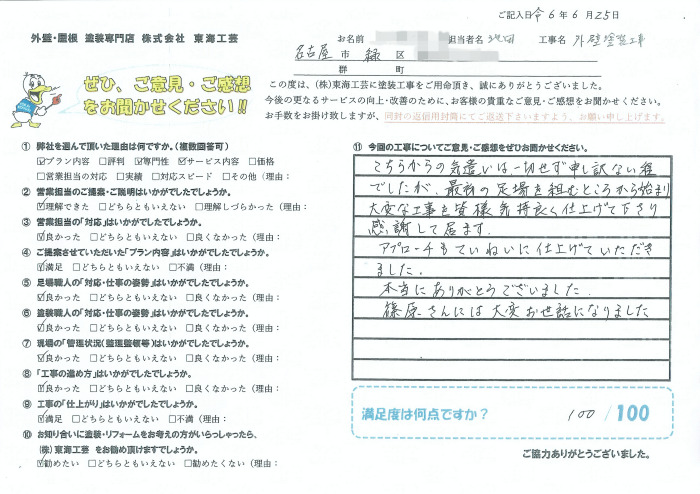 ご記入日 令6年6月25日
外壁・屋根 塗装専門店 株式会社 東海工芸
お名前 担当者名 工事名 外壁塗装工事
名古屋 市 緑 区
郡 町
ぜひ、ご意見・ご感想
をお聞かせください!!
この度は、(株)東海工芸に塗装工事をご用命頂き、誠にありがとうございました。
今後の更なるサービスの向上・改善のために、お客様の貴重なご意見・ご感想をお聞かせください。
お手数をお掛け致しますが、同封の返信用封筒にてご返送下さいますよう、お願い申し上げます。
① 弊社を選んで頂いた理由は何ですか。(複数回答可)
☑プラン内容 □評判 ☑専門性 ☑サービス内容 □価格
□営業担当の対応 □実績 □対応スピード □その他（理由：
② 営業担当のご提案・ご説明はいかがでしたでしょうか。
☑理解できた □どちらともいえない □理解しづらかった（理由：
③ 営業担当の「対応」はいかがでしたでしょうか。
☑良かった □どちらともいえない □良くなかった（理由：
④ ご提案させていただいた「プラン内容」はいかがでしたでしょうか。
☑満足 □どちらともいえない □不満（理由：
⑤ 足場職人の「対応・仕事の姿勢」はいかがでしたでしょうか。
☑良かった □どちらともいえない □良くなかった（理由：
⑥ 塗装職人の「対応・仕事の姿勢」はいかがでしたでしょうか。
☑良かった □どちらともいえない □良くなかった（理由：
⑦ 現場の「管理状況(整理整頓等)はいかがでしたでしょうか。
☑良かった □どちらともいえない □良くなかった（理由：
⑧ 「工事の進め方」はいかがでしたでしょうか。
☑良かった □どちらともいえない □良くなかった（理由：
⑨ 工事の「仕上がり」はいかがでしたでしょうか。
☑満足 □どちらともいえない □不満（理由：
⑩ お知り合いに塗装・リフォームをお考えの方がいらっしゃったら、
(株)東海工芸 をお勧め頂けますでしょうか。
☑勧めたい □どちらともいえない □勧めたくない（理由：
⑪ 今回の工事についてご意見・ご感想をぜひお聞かせください。
こちらからの気遣いは一切せず申し訳ない程
でしたが、最初の足場を組むところから始まり
大変な工事を皆様気持良く仕上げて下さり
感謝して居ます。
アプローチもていねいに仕上げていただき
ました。
本当にありがとうございました。
篠原さんには大変お世話になりました
満足度は何点ですか？ 100 /100
ご協力ありがとうございました。